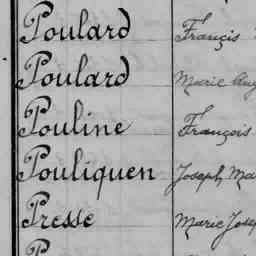 Poulard François
Poulard Marie
Pouline François
Pouliquen Joseph
Presse Marie